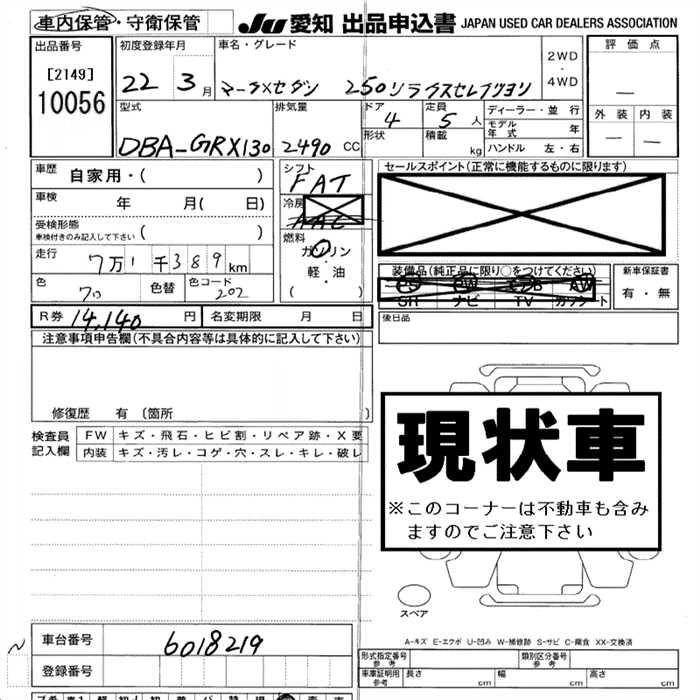 車内保管・守衛保管 JU 愛知 出品申込書 JAPAN USED CAR DEALERS ASSOCIATION
出品番号 初度登録年月 車名・グレード 評価点
[2149] 22 3月 マークXセダン 250リラックスセレクション 2WD・4WD —
10056 外装 内装
型式 排気量 ドア 定員 ディーラー・並行
DBA-GRX130 2490 CC 4 5人 モデル年式 年
形状 積載 kg ハンドル 左・右 — —
車歴 自家用・( ) シフト FAT セールスポイント(正常に機能するものに限ります)
車検 年 月( 日) 冷房 AAC
受検形態 車検付きのみ記入して下さい ( ) 燃料 ガソリン・軽・油 ( )
走行 7万1千389km 装備品(純正品に限り○をつけてください) 新車保証書
色 クロ 色替 色コード 202 PS PW AW 有・無
SH ナビ TV カワシート
R券 14,140円 名変期限 月 日 後日品
注意事項申告欄(不具合内容等は具体的に記入して下さい)
修復歴 有 (箇所 )
検査員記入欄 FW キズ・飛石・ヒビ割・リペア跡・X要
内装 キズ・汚レ・コゲ・穴・スレ・キレ・破レ
現状車
※このコーナーは不動車も含み
ますのでご注意下さい
スペア
A-キズ E-エクボ U-凹み W-補修跡 S-サビ C-腐食 XX-交換済
車台番号 6018219 形式指定番号 参考 類別区分番号 参考
登録番号 車庫証明用 参考 長さ cm 幅 cm 高さ cm